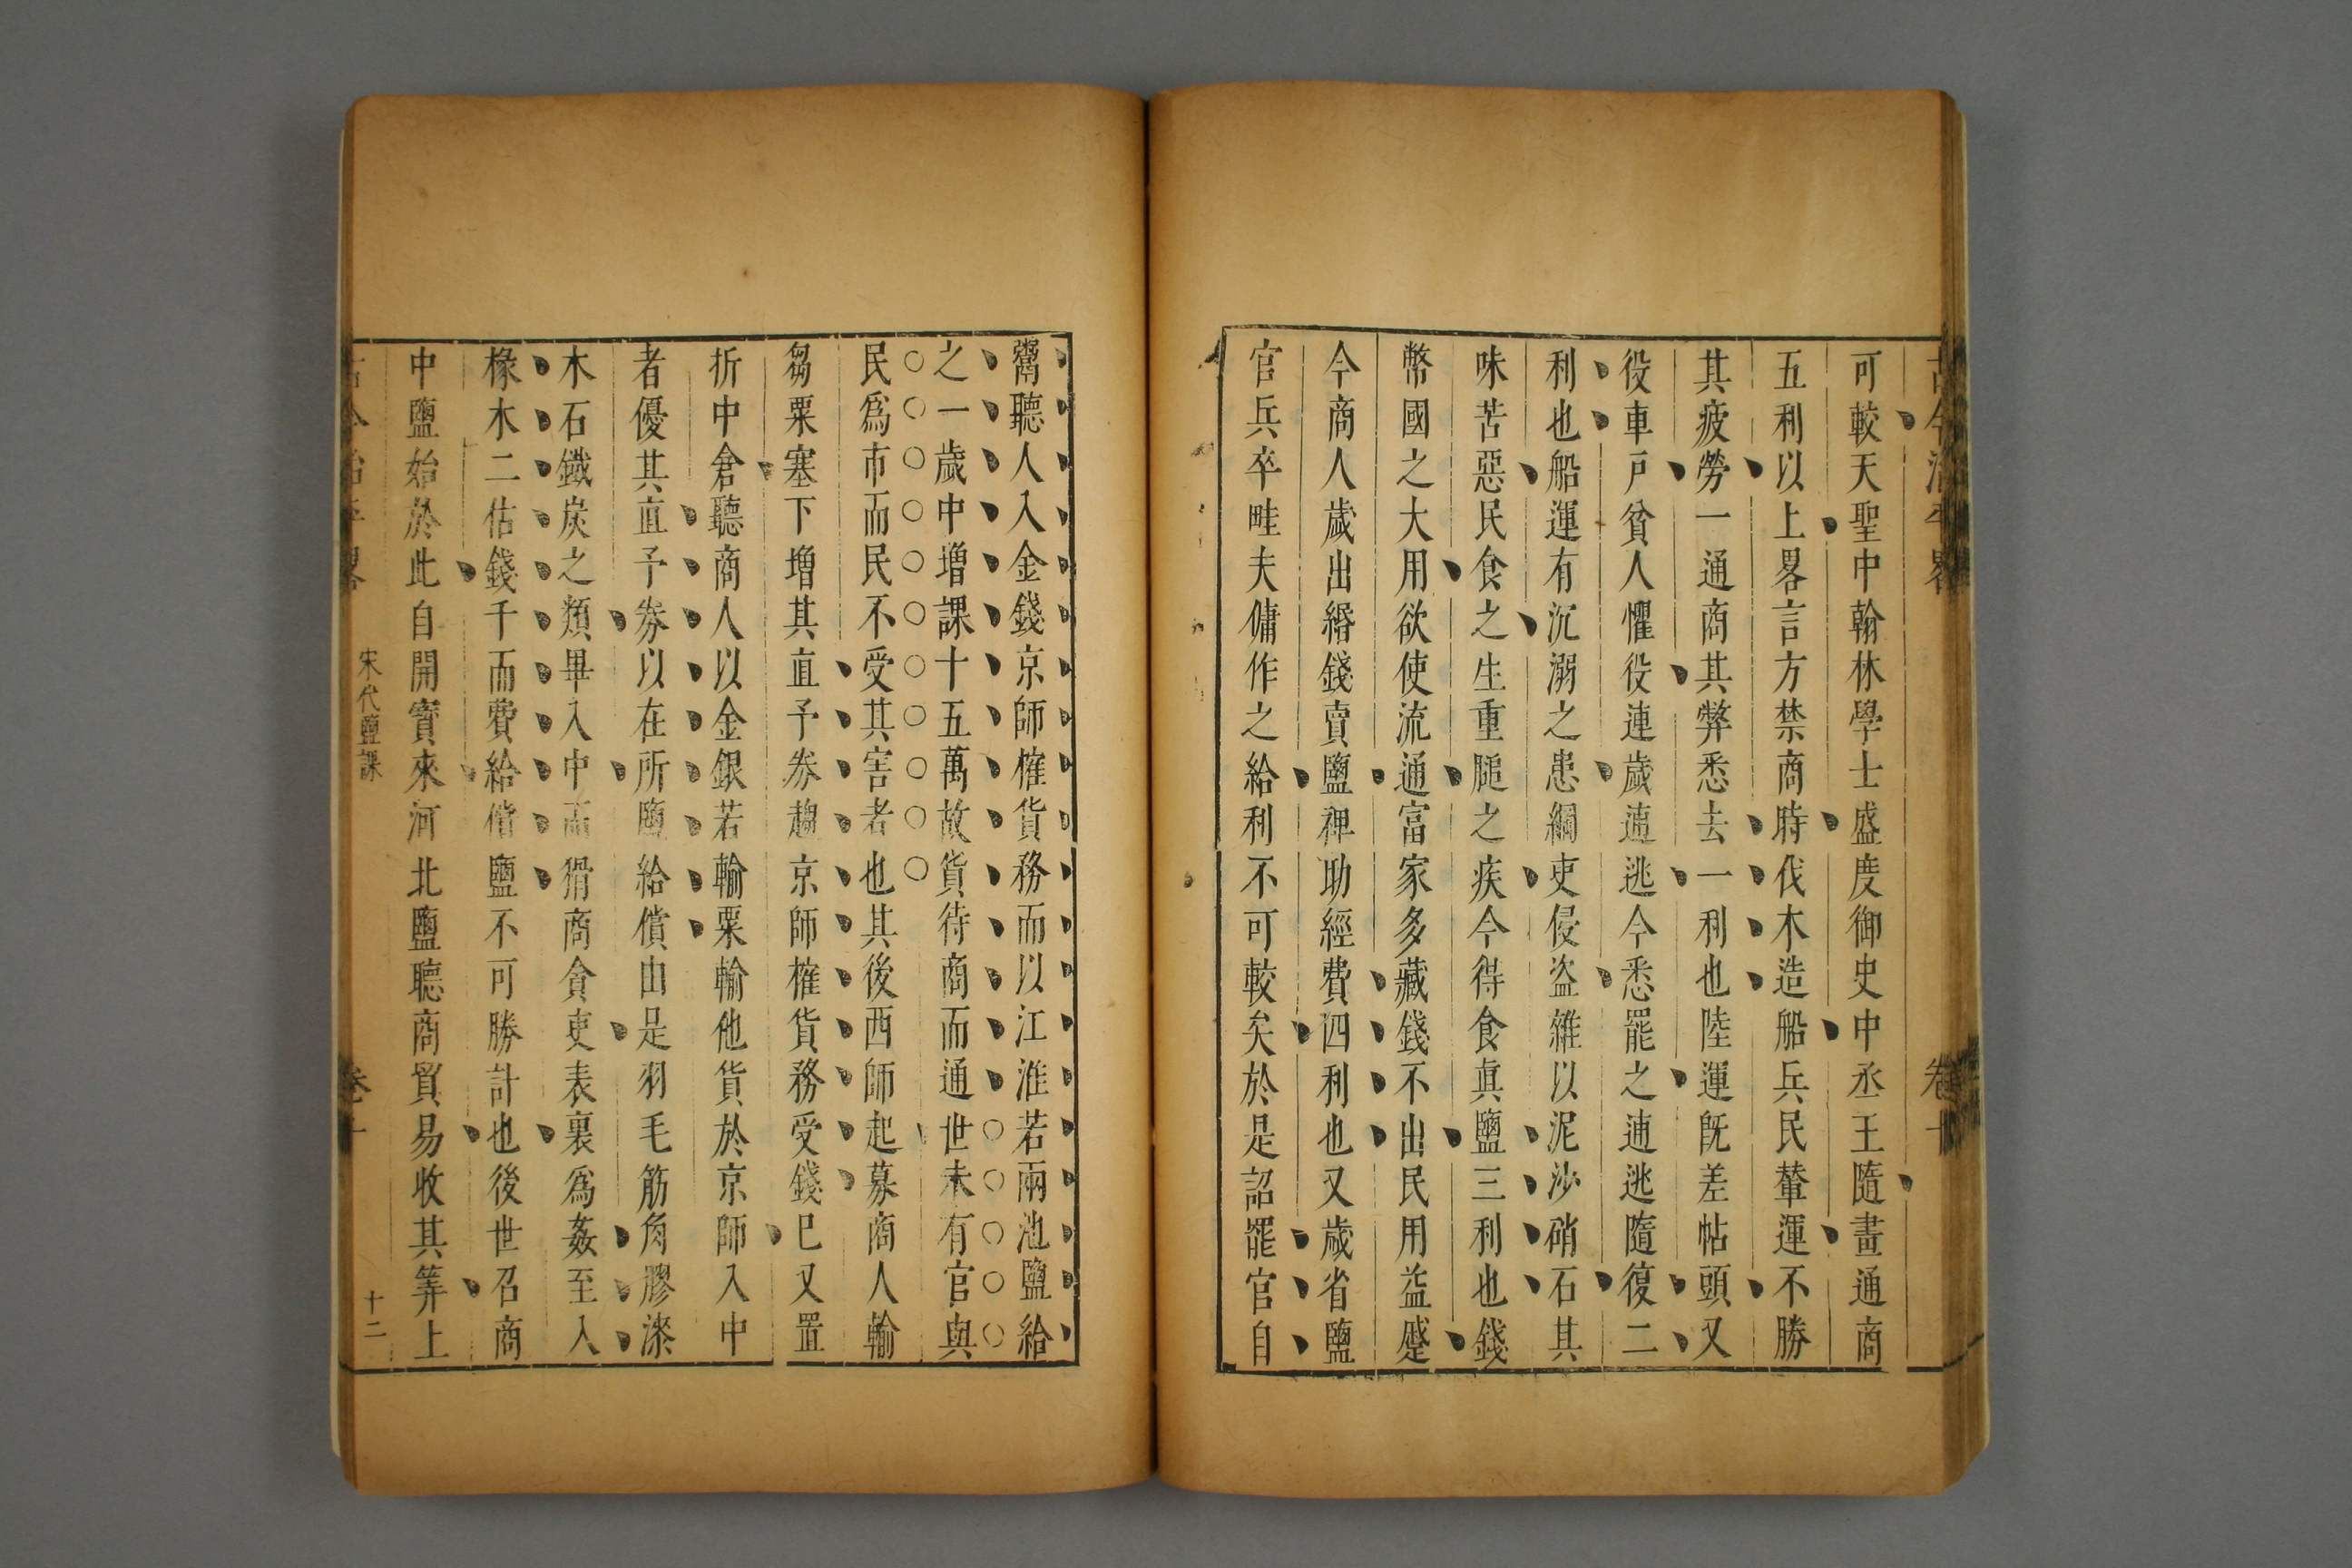 古今治平畧
卷十
可較天聖中翰林學士盛度御史中丞王隨畫通商
五利以上畧言方禁商時伐木造船兵民輦運不勝
其疲勞一通商其弊悉去一利也陸運旣差帖頭又
役車戸貧人懼役連歲逋逃今悉罷之逋逃隨復二
利也船運有沉溺之患綱吏侵盜雜以泥沙硝石其
味苦惡民食之生重膇之疾今得食眞鹽三利也錢
幣國之大用欲使流通富家多藏錢不出民用益蹙
今商人歲出緡錢賣鹽裨助經費四利也又歲省鹽
官兵卒畦夫傭作之給利不可較矣於是詔罷官自
鬻聽人入金錢京師榷貨務而以江淮若兩池鹽給
之一歲中增課十五萬故貨待商而通世未有官與
民爲市而民不受其害者也其後西師起募商人輸
芻粟塞下增其直予券趨京師榷貨務受錢已又置
折中倉聽商人以金銀若輸粟輸他貨於京師入中
者優其直予券以在所鹽給償由是羽毛筋角膠漆
木石鐵炭之類畢入中而猾商貪吏表裏爲姦至入
椽木二估錢千而費給偕鹽不可勝計也後世召商
中鹽始於此自開寳來河北鹽聽商貿易收其筭上
宋代鹽課
十二